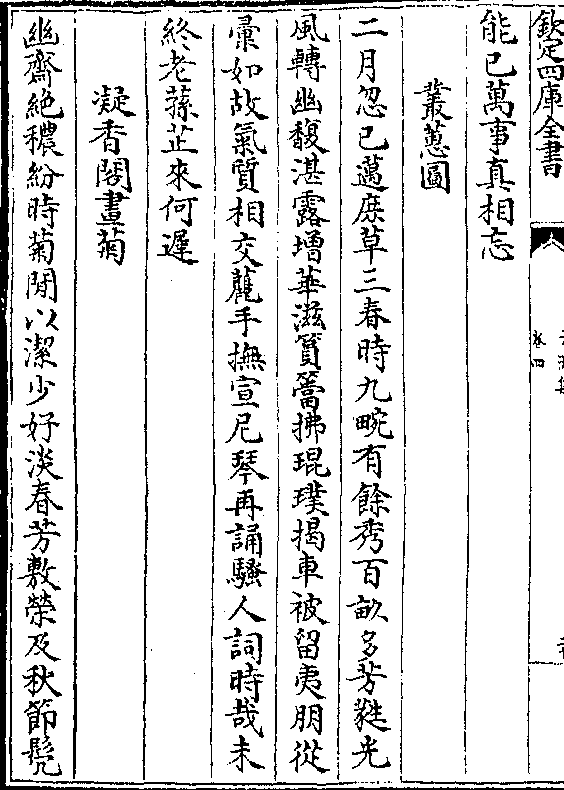 欽定四庫全書
卷四
能已萬事真相忘
叢蕙圖
二月忽已邁庶草三春時九畹有餘秀百畝多芳蕤光
風轉幽馥湛露增華滋篔簹拂琨璞揭車被留夷朋從
彚如故氣質相交蘼手撫宣尼琴再誦騷人詞時哉未
終老蓀芷來何遲
凝香閣畫菊
幽齋絶穠紛時菊閒以潔少好淡春芳敷榮及秋節